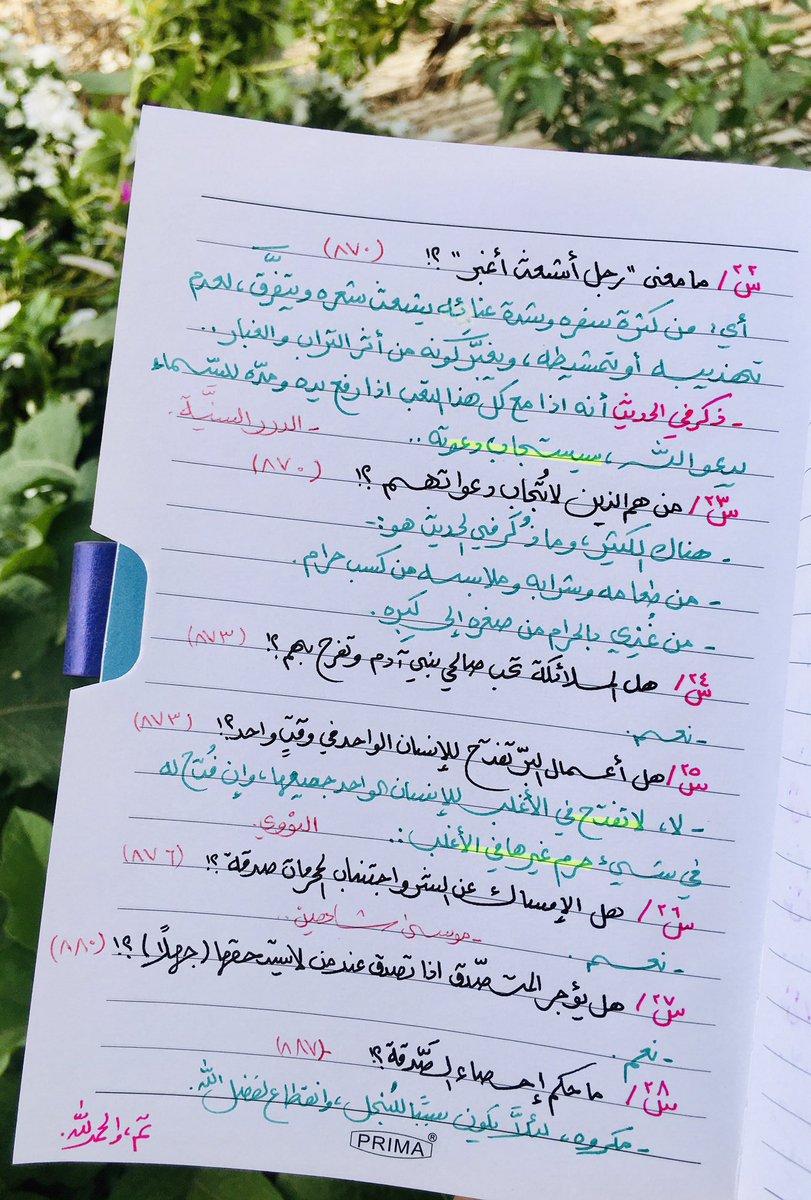 س٢٢/ ما معنى "رجل أشعث أغبر" ؟! (٨٧٠)
أي: من كثرة سفره وشدة عنائه يشعث شعره ويتفرّق، لعدم
تهذيبه أو تمشيطه، ويغبرّ كونه من أثر التراب والغبار..
- ذكر في الحديث أنه اذا مع كلّ هذا التعب اذا رفع يده ومدّه للسّماء
يدعو الله، سيستجاب دعوته.. - الدرر السنيَّة.
س٢٣/ من هم الذين لا تُجاب دعواتهم ؟! (٨٧٠)
- هناك الكثير، وما ذُكر في الحديث هو:-
- من طعامه وشرابه وملابسه من كسب حرام.
- من غُذي بالحرام من صغره إلى كبره.
س٢٤/ هل الملائكة تحب صالحي بني آدم وتفرح بهم ؟! (٨٧٣)
- نعم.
س٢٥/ هل أعمال البرّ تفتح للإنسان الواحد في وقتٍ واحد؟! (٨٧٣)
- لا، لا تفتح في الأغلب للإنسان الواحد جميعها، وإن فُتح له
في شيء حرم غيرها في الأغلب.. النووي.
س٢٦/ هل الإمساك عن الشر واجتناب الحرمات صدقة ؟! (٨٧٦)
- نعم. - موسى شاهين..
س٢٧/ هل يؤجر المتصّدق اذا تصدق عند من لا يستحقها (جهلًا) ؟! (٨٨٠)
- نعم.
س٢٨/ ما حكم إحصاء الصَّدقة ؟! (٨٨٧)
- مكروه، لئلَّا يكون سببًا للبُخل، وانقطاع لفضل الله.
تم، والحمدلله.
PRIMA®